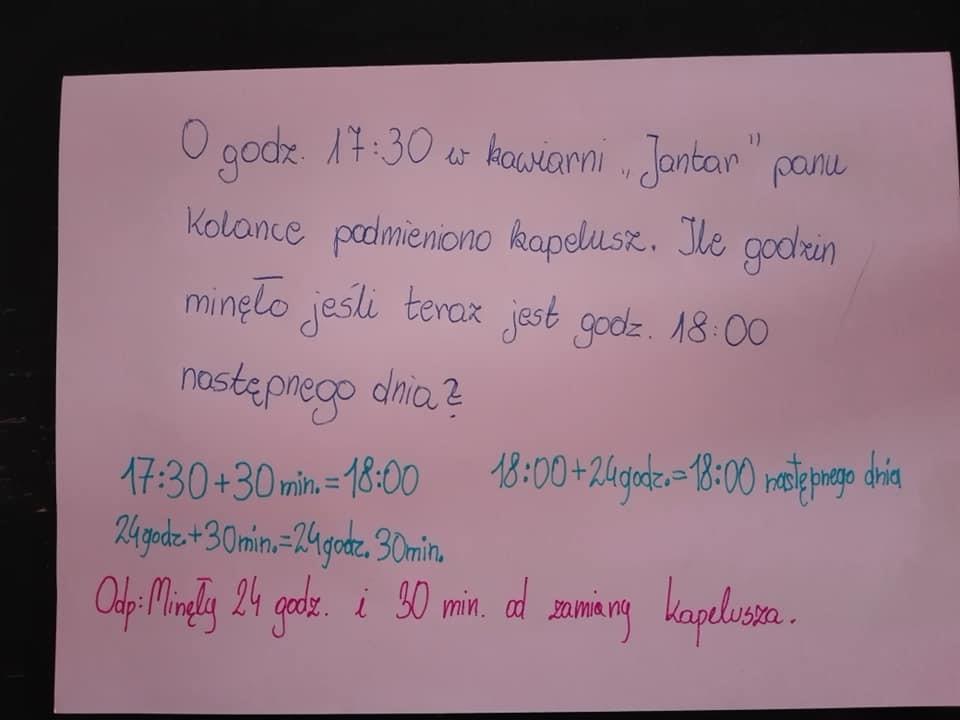 O godz. 17:30 w kawiarni „Jantar" panu
Kolance podmieniono kapelusz. Ile godzin
minęło jeśli teraz jest godz. 18:00
następnego dnia?
17:30+30min.=18:00 18:00+24godz.=18:00 następnego dnia
24godz.+30min.=24godz. 30min.
Odp:Minęły 24 godz. i 30 min. od zamiany kapelusza.